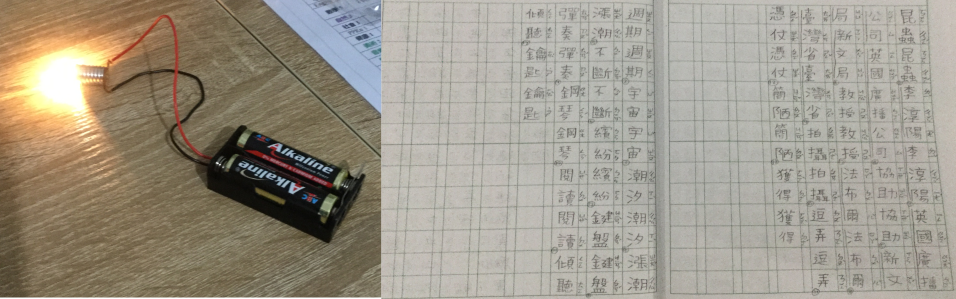 Alkaline
ABC
Alkaline
ABC
昆蟲昆蟲李淳陽李淳陽英國廣播
公司英國廣播公司協助協助新文
局新文局教授教授法布爾法布爾
臺灣省臺灣省拍攝拍攝逗弄逗弄
憑仗憑仗簡陋簡陋獲得獲得
週期週期宇宙宇宙潮汐潮汐漲潮
漲潮不斷不斷繽紛繽紛鍵盤鍵盤
彈奏彈奏鋼琴鋼琴閱讀閱讀傾聽
傾聽鑰匙鑰匙